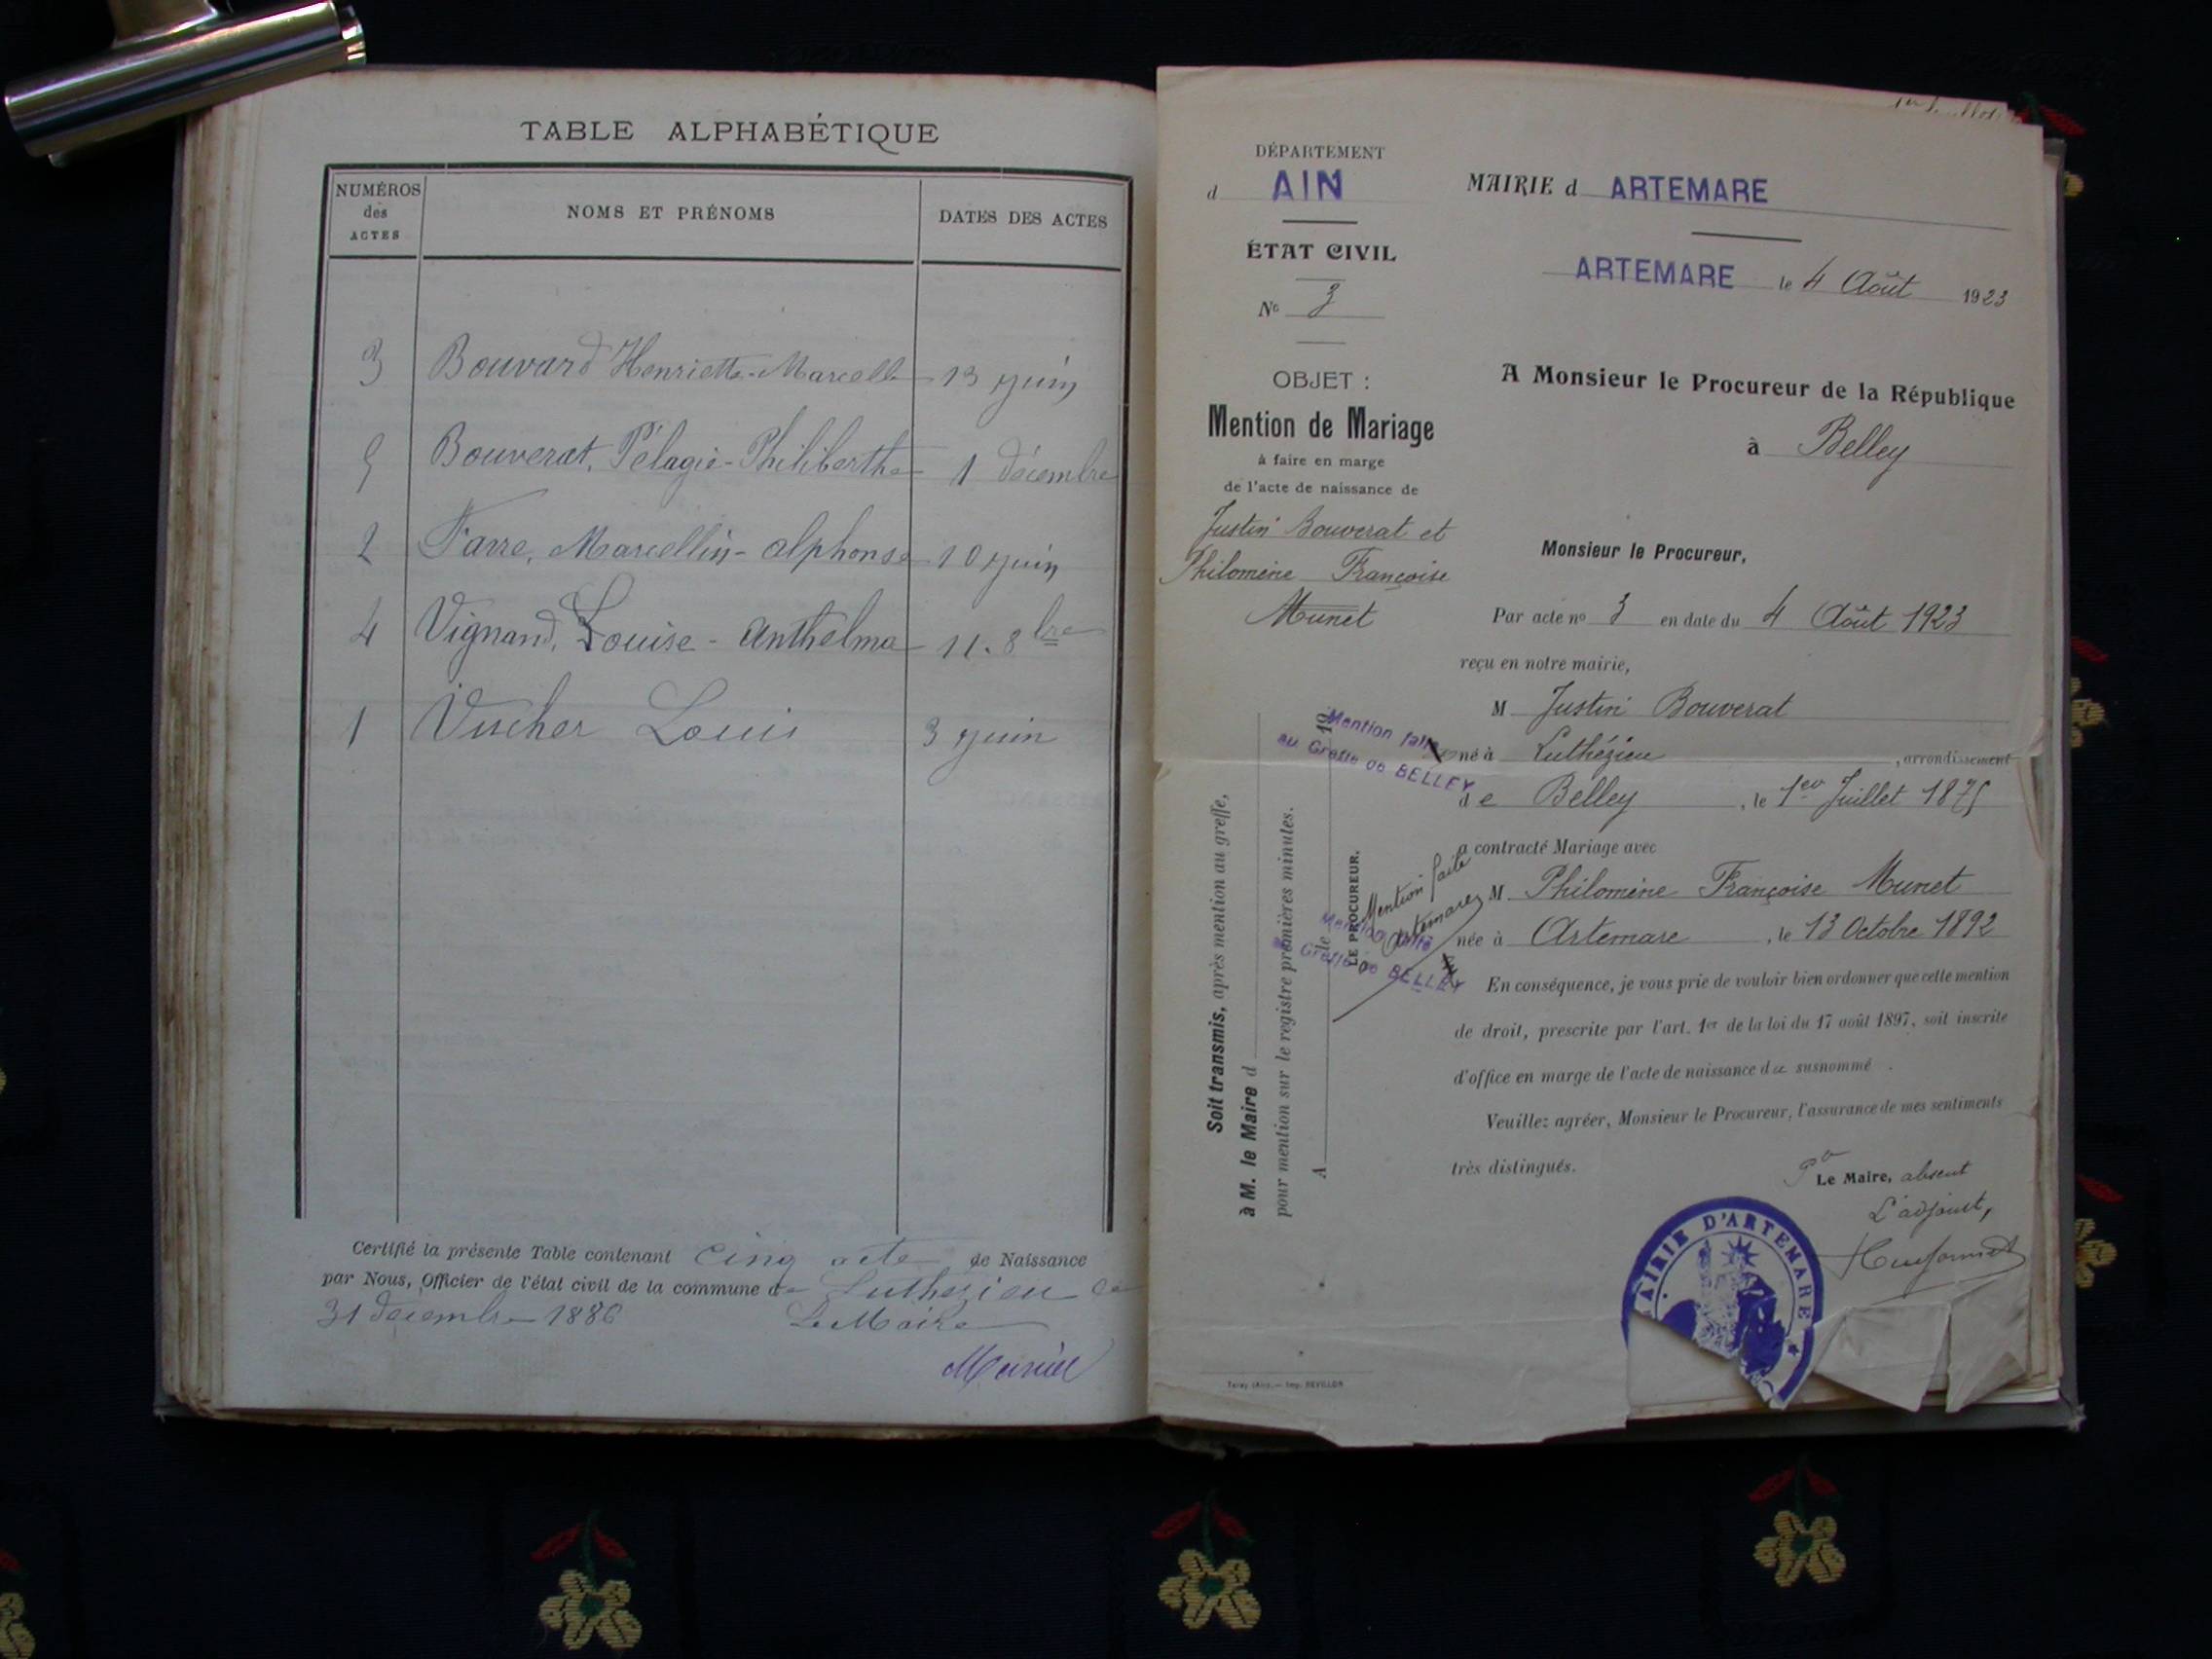 TABLE ALPHABÉTIQUE
NUMÉROS des ACTES
NOMS ET PRÉNOMS
DATES DES ACTES
3 Bouvard Henriette-Marcelle 13 juin
5 Bouverat, Pélagie-Philiberthe 1 décembre
2 Favre, Marcellin-alphonse 10 juin
4 Vignand, Louise-Anthelme 11. 8bre
1 Vucher Louis 3 juin
Certifié la présente Table contenant cinq acte de Naissance
par Nous, Officier de l'état civil de la commune de Luthezieu ce
31 decembre 1886 Le Maire
DÉPARTEMENT
d AIN
ÉTAT CIVIL
No 3
OBJET :
Mention de Mariage
à faire en marge
de l'acte de naissance de
Justin Bouverat et
Philomène Françoise
Munet
MAIRIE d ARTEMARE
ARTEMARE le 4 Août 1923
A Monsieur le Procureur de la République
à Belley
Monsieur le Procureur,
Par acte no 3 en date du 4 Août 1923
reçu en notre mairie,
M Justin Bouverat
né à Luthézieu , arrondissement
de Belley , le 1er Juillet 1875
a contracté Mariage avec
M Philomène Françoise Munet
née à Artemare , le 13 Octobre 1892
En conséquence, je vous prie de vouloir bien ordonner que cette mention
de droit, prescrite par l'art. 1er de la loi du 17 août 1897, soit inscrite
d'office en marge de l'acte de naissance du susnommé .
Veuillez agréer, Monsieur le Procureur, l'assurance de mes sentiments
très distingués.
Pr Le Maire, absent
L'adjoint,
MAIRIE D'ARTEMARE
Soit transmis, après mention au greffe,
à M. le Maire d
pour mention sur le registre premières minutes.
A le 19
LE PROCUREUR.
Mention faite
au Greffe de BELLEY
Mention faite
Artemare
Mention faite
Greffe de BELLEY